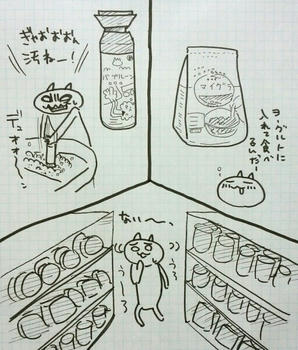 ぎゃおおおん
汚ねー!
デュオオ〜ン
バブルーン
マイグラ
ヨーグルトに
入れて食べ
るんだー
ない〜、
うろ
うーろ